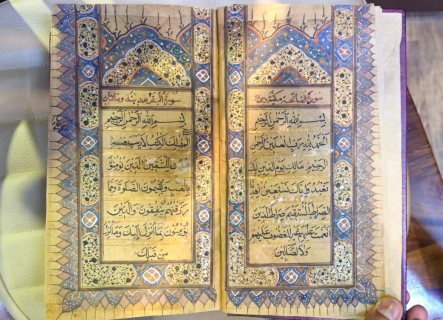 سورة الفاتحة مكية وهي
بسم الله الرحمن الرحيم
الحمد لله رب العلمين الرحمن
الرحيم ملك يوم الدين اياك
نعبد واياك نستعين اهدنا
الصراط المستقيم صراط الذين
انعمت عليهم غير المغضوب عليهم
ولا الضالين
سورة البقرة مدنية وهي مائتان
بسم الله الرحمن الرحيم
الم ذلك الكتب لا ريب فيه هدى
للمتقين الذين يؤمنون
بالغيب ويقيمون الصلوة ومما
رزقنهم ينفقون والذين
يؤمنون بما انزل اليك وما انزل
من قبلك